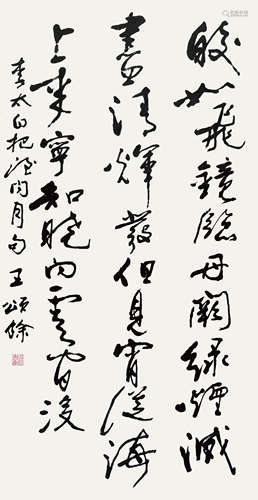 皎如飛鏡臨丹闕綠煙滅
盡清輝發但見宵從海
上來寧知曉向雲間沒
李太白把酒問月句 王頌餘